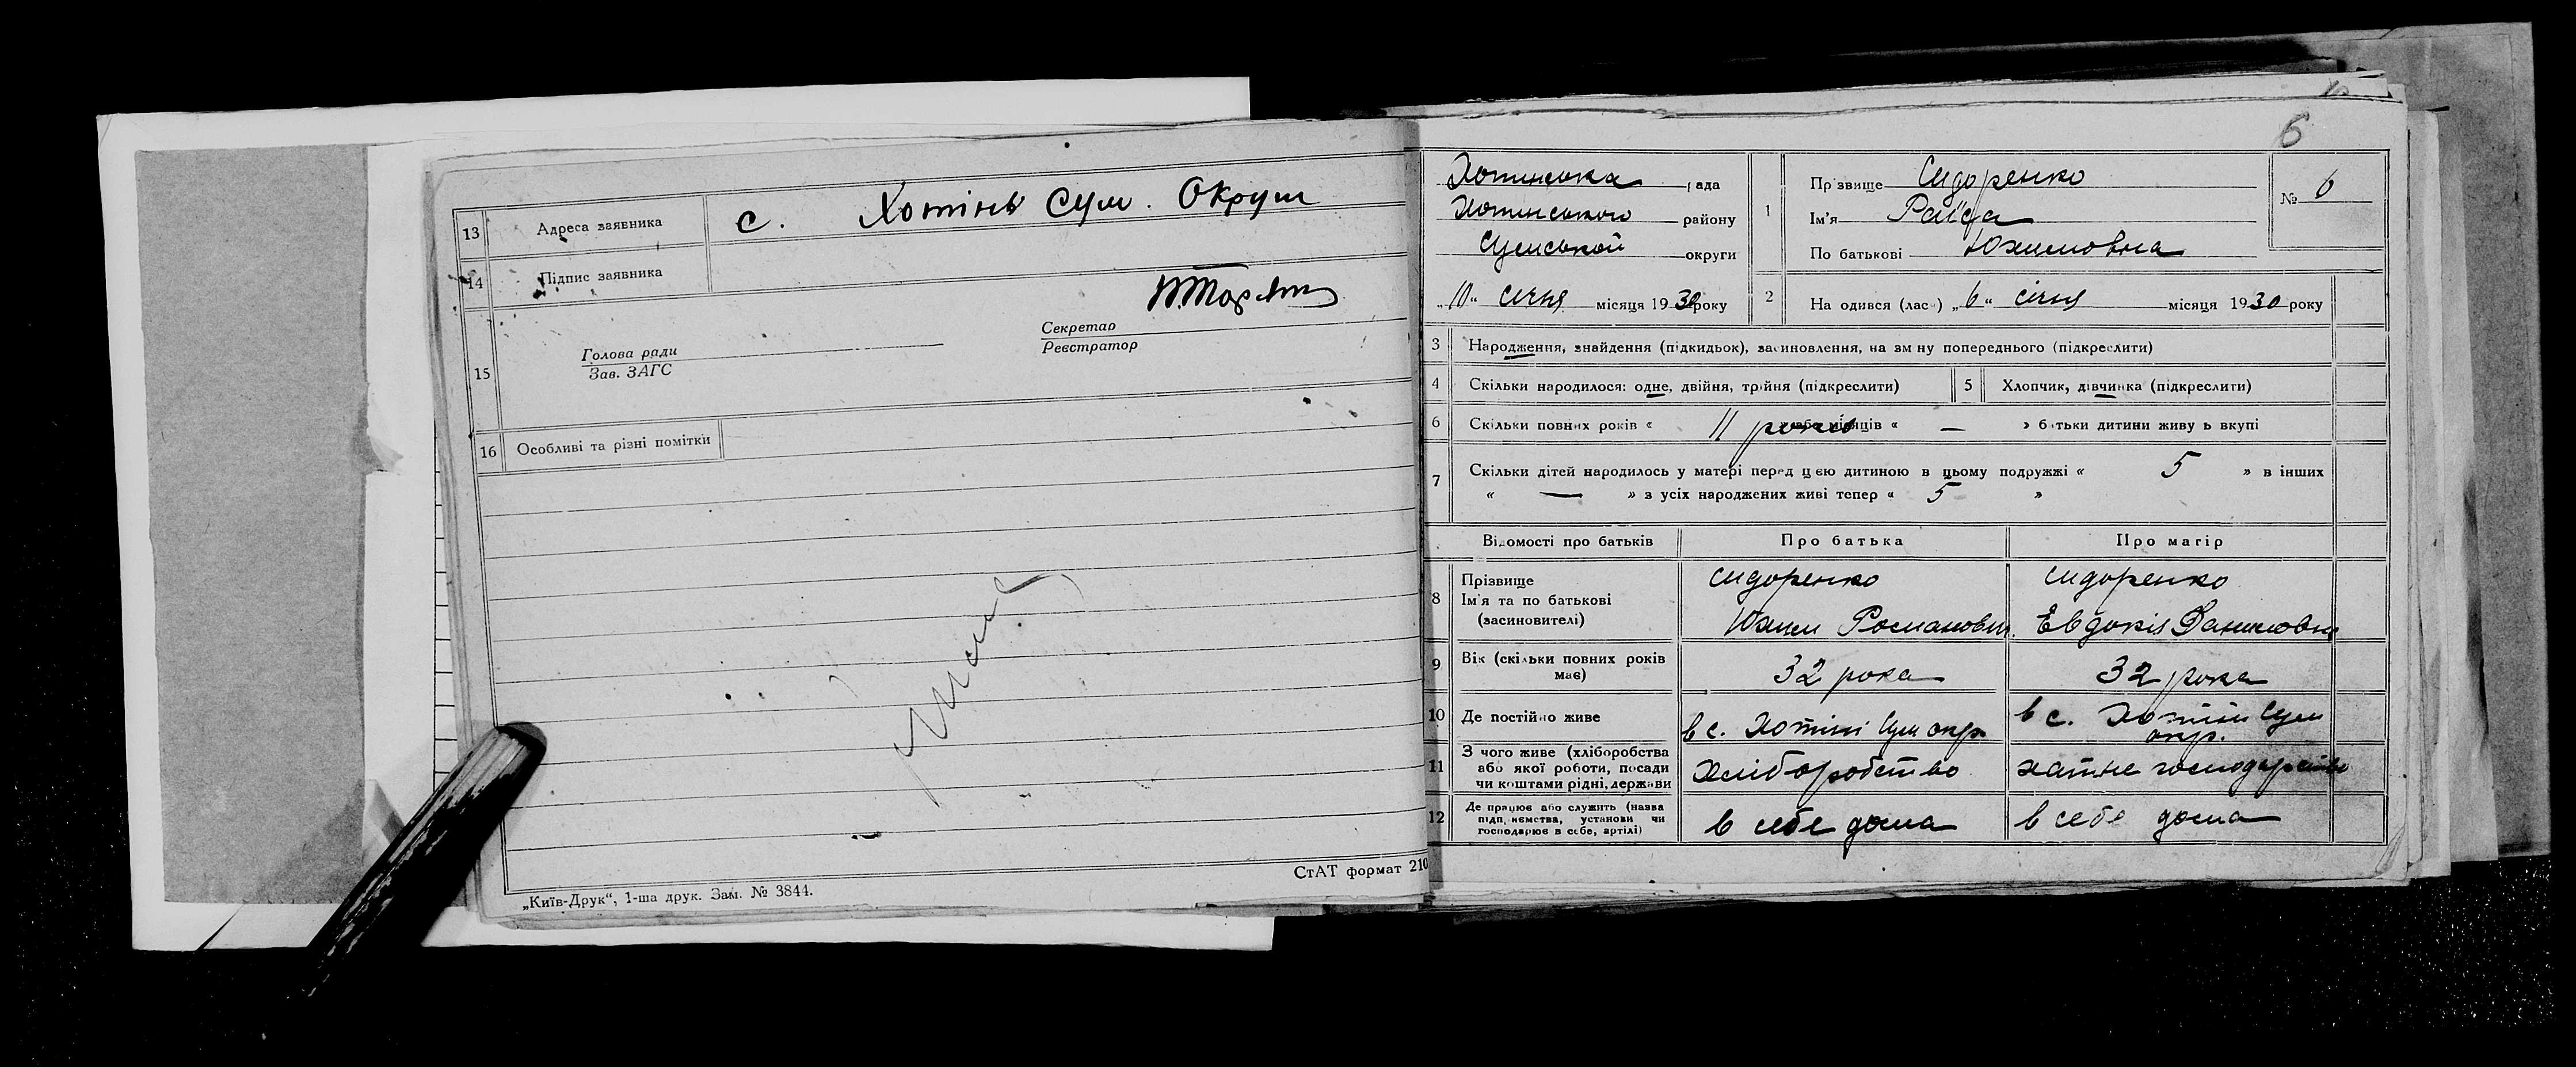 13 Адреса заявника с. Хотінь Сум. Округи
14 Підпис заявника
15 Голова ради
Зав. ЗАГС
Секретар
Реєстратор
16 Особливі та різні помітки
СтАТ формат 210
„Київ-Друк“, 1-ша друк. Зам. № 3844.
6
Хотинська рада
Хотинського району
Сумської округи
„10“ січня місяця 1930 року
1 Прізвище Сидоренко
Ім'я Раїса
По батькові Юхимовна
№ 6
2 На одився (лас) „6“ січня місяця 1930 року
3 Народження, знайдення (підкидьок), засиновлення, на зміну попереднього (підкреслити)
4 Скільки народилося: одне, двійня, трійня (підкреслити)
5 Хлопчик, дівчинка (підкреслити)
6 Скільки повних років « 11 років або місяців « — » батьки дитини живуть вкупі
7 Скільки дітей народилось у матері перед цією дитиною в цьому подружжі « 5 » в інших
« — » з усіх народжених живі тепер « 5 »
Відомості про батьків Про батька Про матір
8 Прізвище
Ім'я та по батькові
(засиновителі)
Сидоренко
Юхим Романович
Сидоренко
Евдокія Даниловна
9 Вік (скільки повних років
має)
32 рока
32 рока
10 Де постійно живе
в с. Хотіні Сум окр.
в с. Хотіні Сум
окр.
11 З чого живе (хліборобства
або якої роботи, посади
чи коштами рідні, держави
хліборобство
хатнє господарство
12 Де працює або служить (назва
підприємства, установи чи
господарює в себе, артілі)
в себе дома
в себе дома